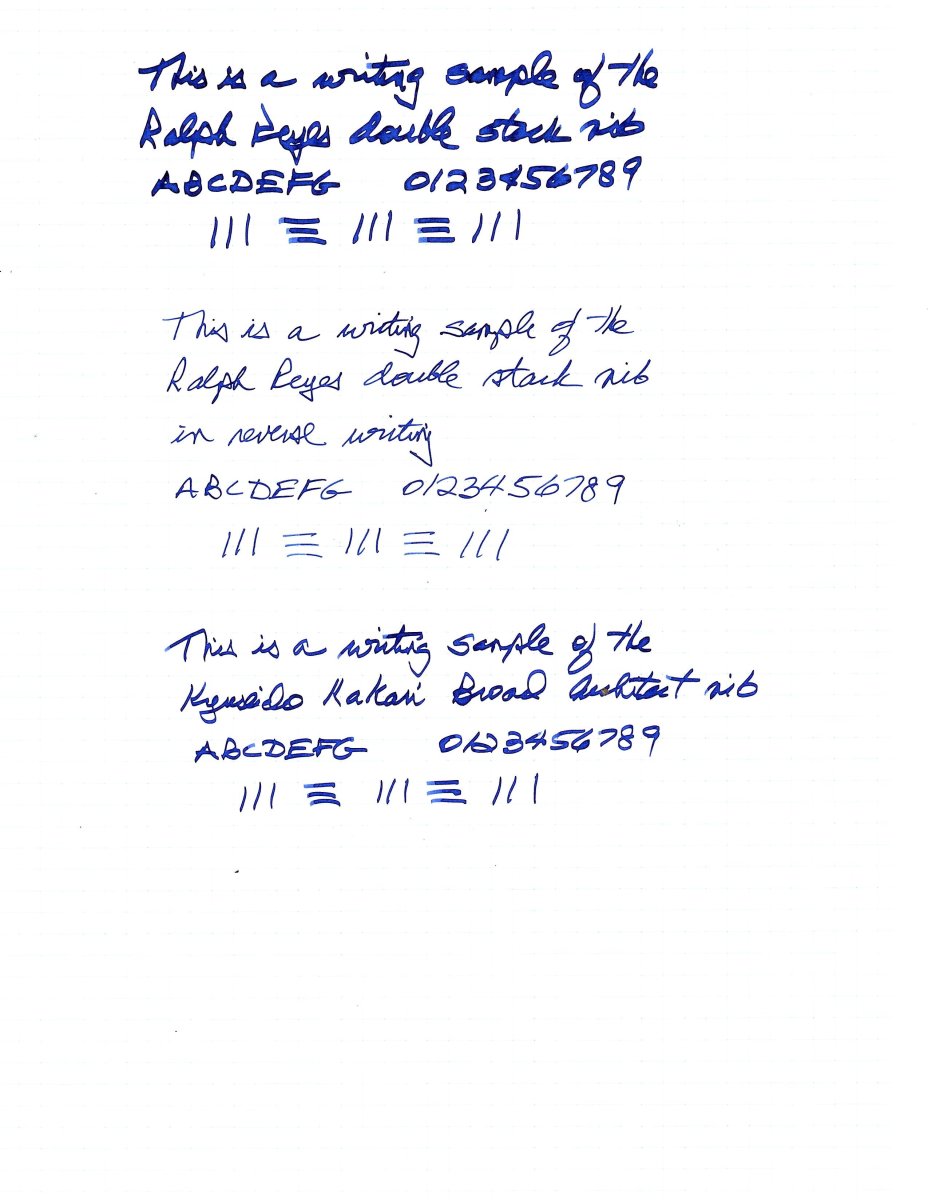 This is a writing sample of the
Ralph Reyes double stack nib
ABCDEFG 0123456789
III ☰ III ☰ III
This is a writing sample of the
Ralph Reyes double stack nib
in reverse writing
ABCDEFG 0123456789
III ☰ III ☰ III
This is a writing sample of the
Kyuseido Kakari Broad Architect nib
ABCDEFG 0123456789
III ☰ III ☰ III